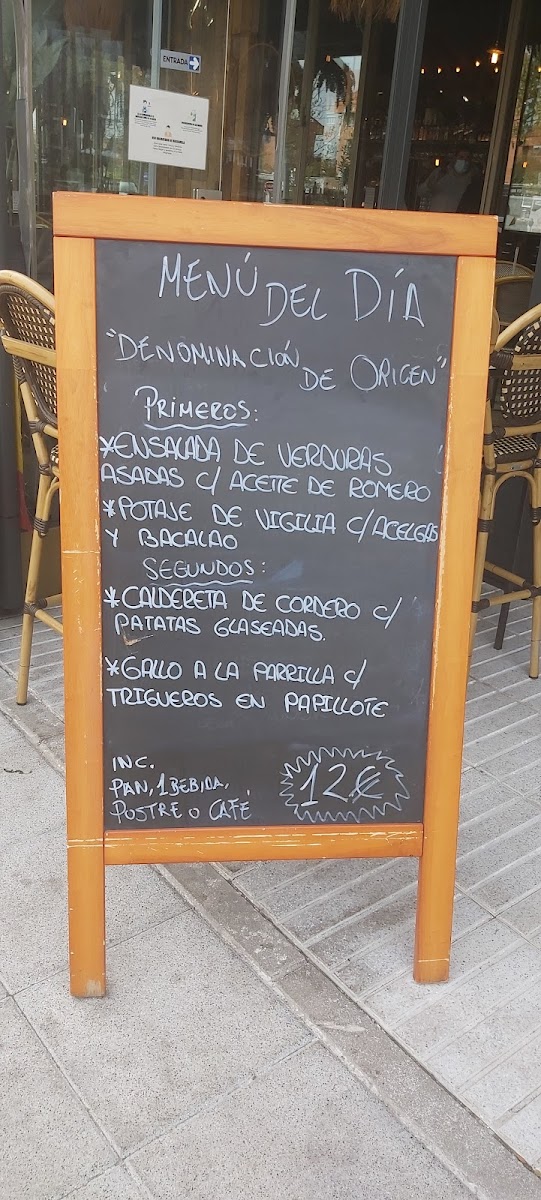 ENTRADA
MENÚ DEL DÍA
"DENOMINACIÓN DE ORIGEN"
PRIMEROS:
*ENSALADA DE VERDURAS
ASADAS C/ ACEITE DE ROMERO
*POTAJE DE VIGILIA C/ACELGAS
Y BACALAO
SEGUNDOS:
*CALDERETA DE CORDERO C/
PATATAS GLASEADAS.
*GALLO A LA PARRILLA C/
TRIGUEROS EN PAPILLOTE
INC.
PAN, 1 BEBIDA,
POSTRE O CAFÉ
12€